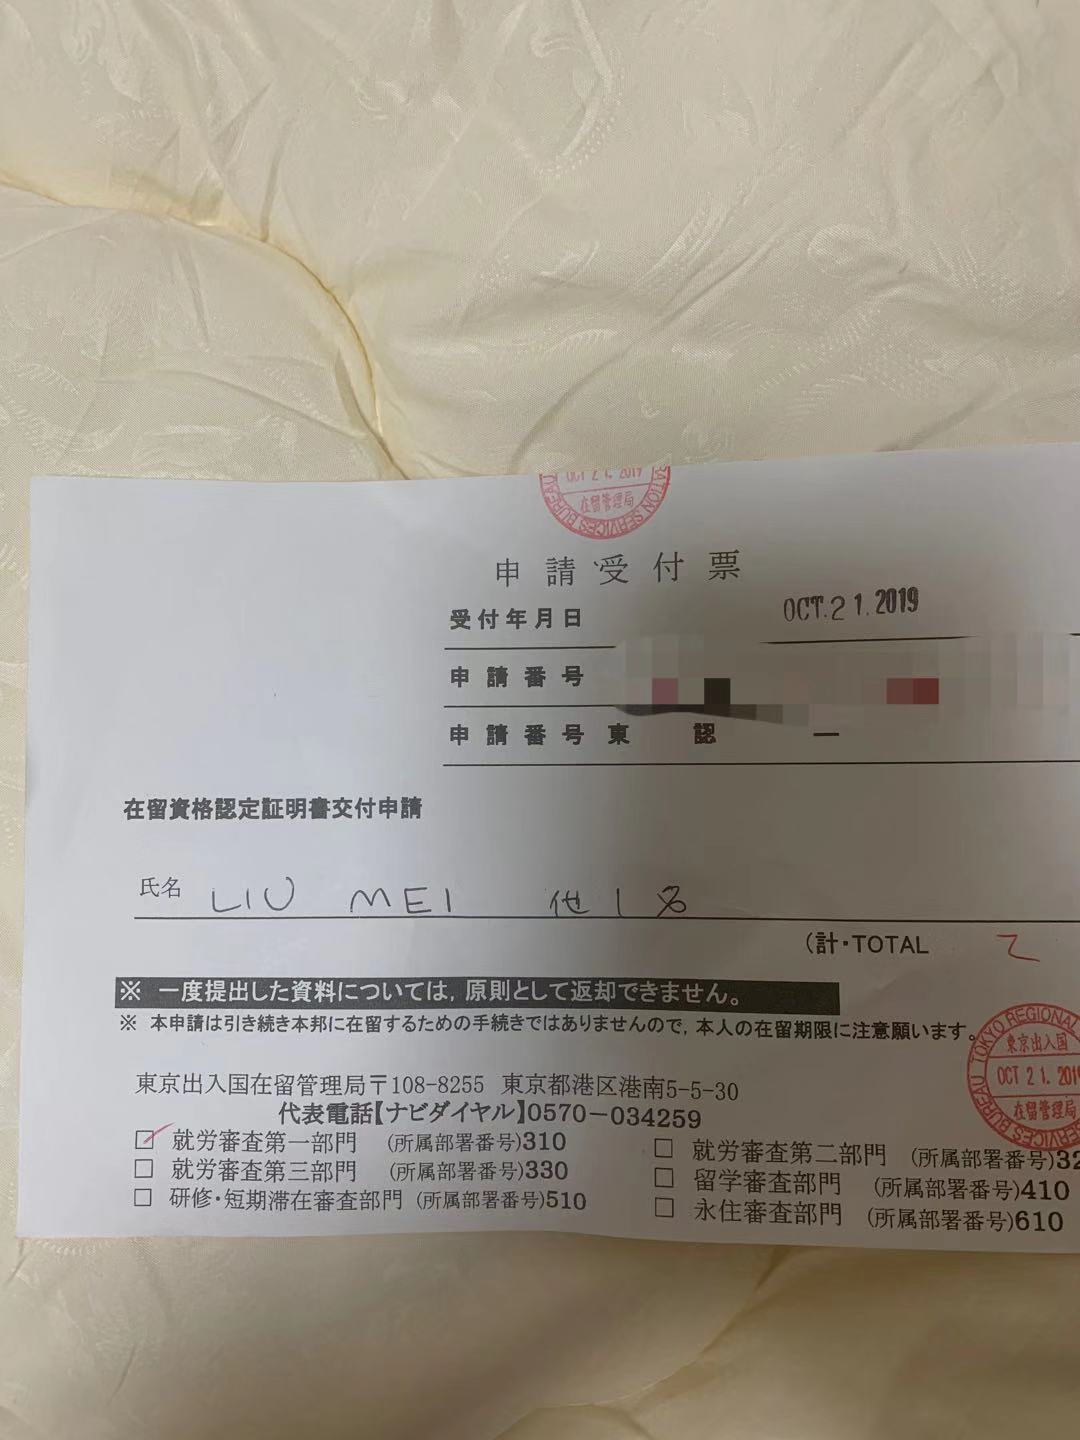 OCT 21. 2019
在留管理局
ATION SERVICES BUREAU
申請受付票
受付年月日 OCT.21.2019
申請番号
申請番号 東 認 ー
在留資格認定証明書交付申請
氏名 LIU MEI 他1名
(計・TOTAL 2
※ 一度提出した資料については,原則として返却できません。
※ 本申請は引き続き本邦に在留するための手続きではありませんので,本人の在留期限に注意願います。
TOKYO REGIONAL
東京出入国
OCT 21. 2019
在留管理局
SERVICES BUREAU
東京出入国在留管理局〒108-8255 東京都港区港南5-5-30
代表電話【ナビダイヤル】0570-034259
☑ 就労審査第一部門 (所属部署番号)310
□ 就労審査第二部門 (所属部署番号)32
□ 就労審査第三部門 (所属部署番号)330
□ 留学審査部門 (所属部署番号)410
□ 研修・短期滞在審査部門 (所属部署番号)510
□ 永住審査部門 (所属部署番号)610